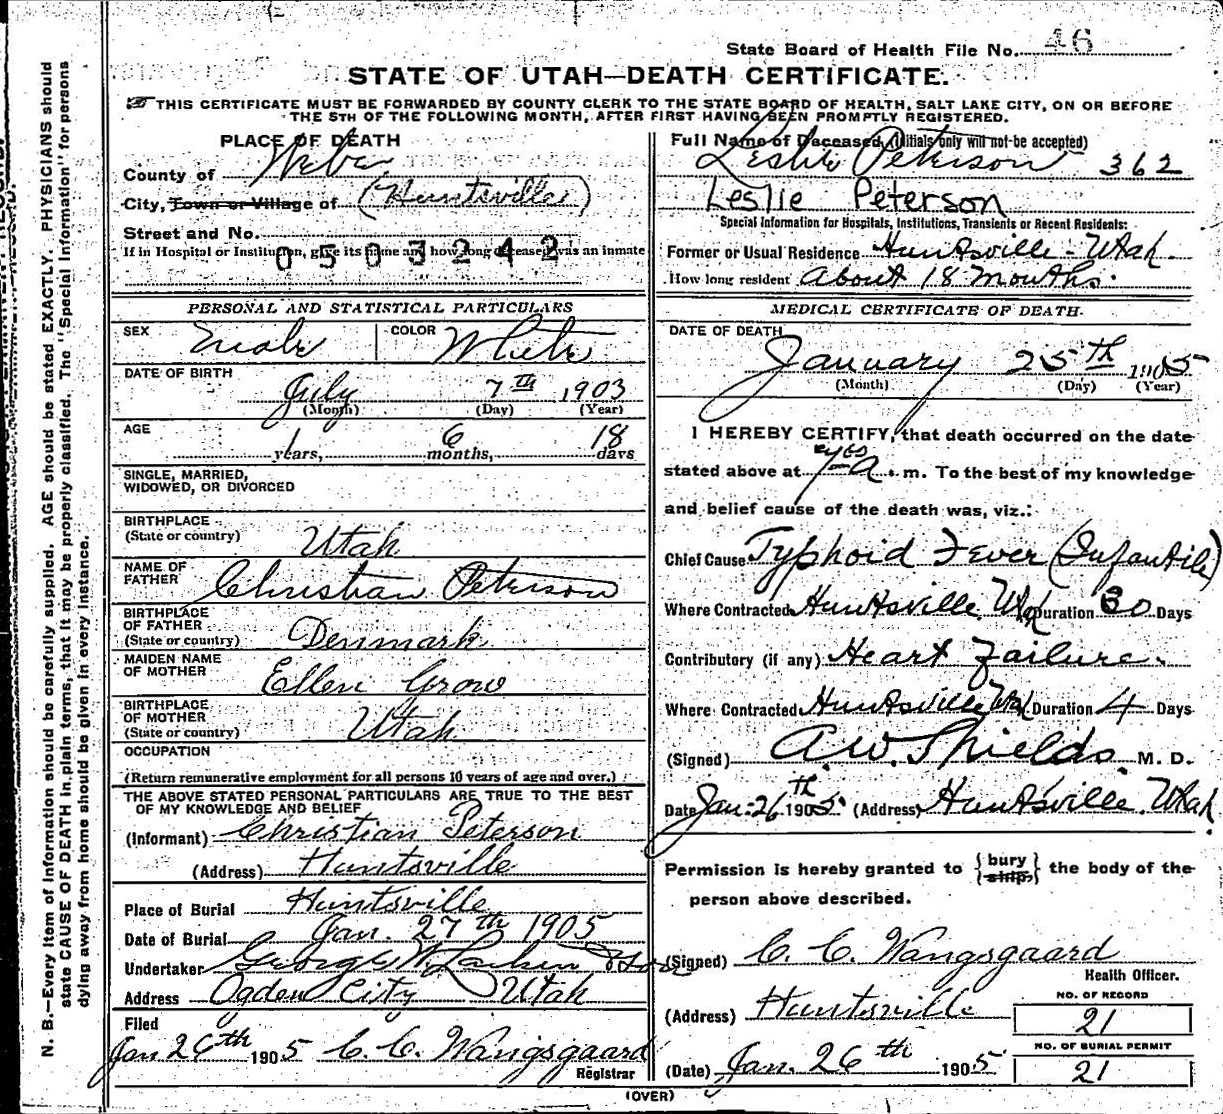 State Board of Health File No. 46
STATE OF UTAH—DEATH CERTIFICATE.
THIS CERTIFICATE MUST BE FORWARDED BY COUNTY CLERK TO THE STATE BOARD OF HEALTH, SALT LAKE CITY, ON OR BEFORE
THE 5TH OF THE FOLLOWING MONTH, AFTER FIRST HAVING BEEN PROMPTLY REGISTERED.
N. B.—Every item of information should be carefully supplied. AGE should be stated EXACTLY. PHYSICIANS should
state CAUSE OF DEATH in plain terms, that it may be properly classified. The "Special Information" for persons
dying away from home should be given in every instance.
PLACE OF DEATH
County of Weber
City, Town or Village of (Huntsville)
Street and No.
If in Hospital or Institution, give its name and how long deceased was an inmate
0503242
PERSONAL AND STATISTICAL PARTICULARS
SEX Male COLOR White
DATE OF BIRTH
July 7th 1903
(Month) (Day) (Year)
AGE
1 years, 6 months, 18 days
SINGLE, MARRIED,
WIDOWED, OR DIVORCED
BIRTHPLACE
(State or country) Utah
NAME OF
FATHER Christian Peterson
BIRTHPLACE
OF FATHER
(State or country) Denmark
MAIDEN NAME
OF MOTHER Ellen Grow
BIRTHPLACE
OF MOTHER
(State or country) Utah
OCCUPATION
(Return remunerative employment for all persons 10 years of age and over.)
THE ABOVE STATED PERSONAL PARTICULARS ARE TRUE TO THE BEST
OF MY KNOWLEDGE AND BELIEF
(Informant) Christian Peterson
(Address) Huntsville
Place of Burial Huntsville
Date of Burial Jan. 27th 1905
Undertaker George W. Larkin & Sons
Address Ogden City Utah
Filed
Jan 26th 1905 C. C. Wangsgaard
Registrar
Full Name of Deceased (Initials only will not be accepted)
Leslie Peterson 362
Leslie Peterson
Special Information for Hospitals, Institutions, Transients or Recent Residents:
Former or Usual Residence Huntsville - Utah.
How long resident About 18 Months.
MEDICAL CERTIFICATE OF DEATH.
DATE OF DEATH
January 25th 1905
(Month) (Day) (Year)
I HEREBY CERTIFY, that death occurred on the date
stated above at 7 a. m. To the best of my knowledge
and belief cause of the death was, viz.:
Chief Cause Typhoid Fever (Infantile)
Where Contracted Huntsville Utah Duration 30 Days
Contributory (if any) Heart Failure.
Where Contracted Huntsville Utah Duration 4 Days
(Signed) A. W. Shields. M. D.
Date Jan. 26th 1905. (Address) Huntsville. Utah.
Permission is hereby granted to {bury ship,} the body of the
person above described.
(Signed) C. C. Wangsgaard
Health Officer.
(Address) Huntsville
NO. OF RECORD
21
NO. OF BURIAL PERMIT
21
(Date) Jan. 26th 1905
(OVER)